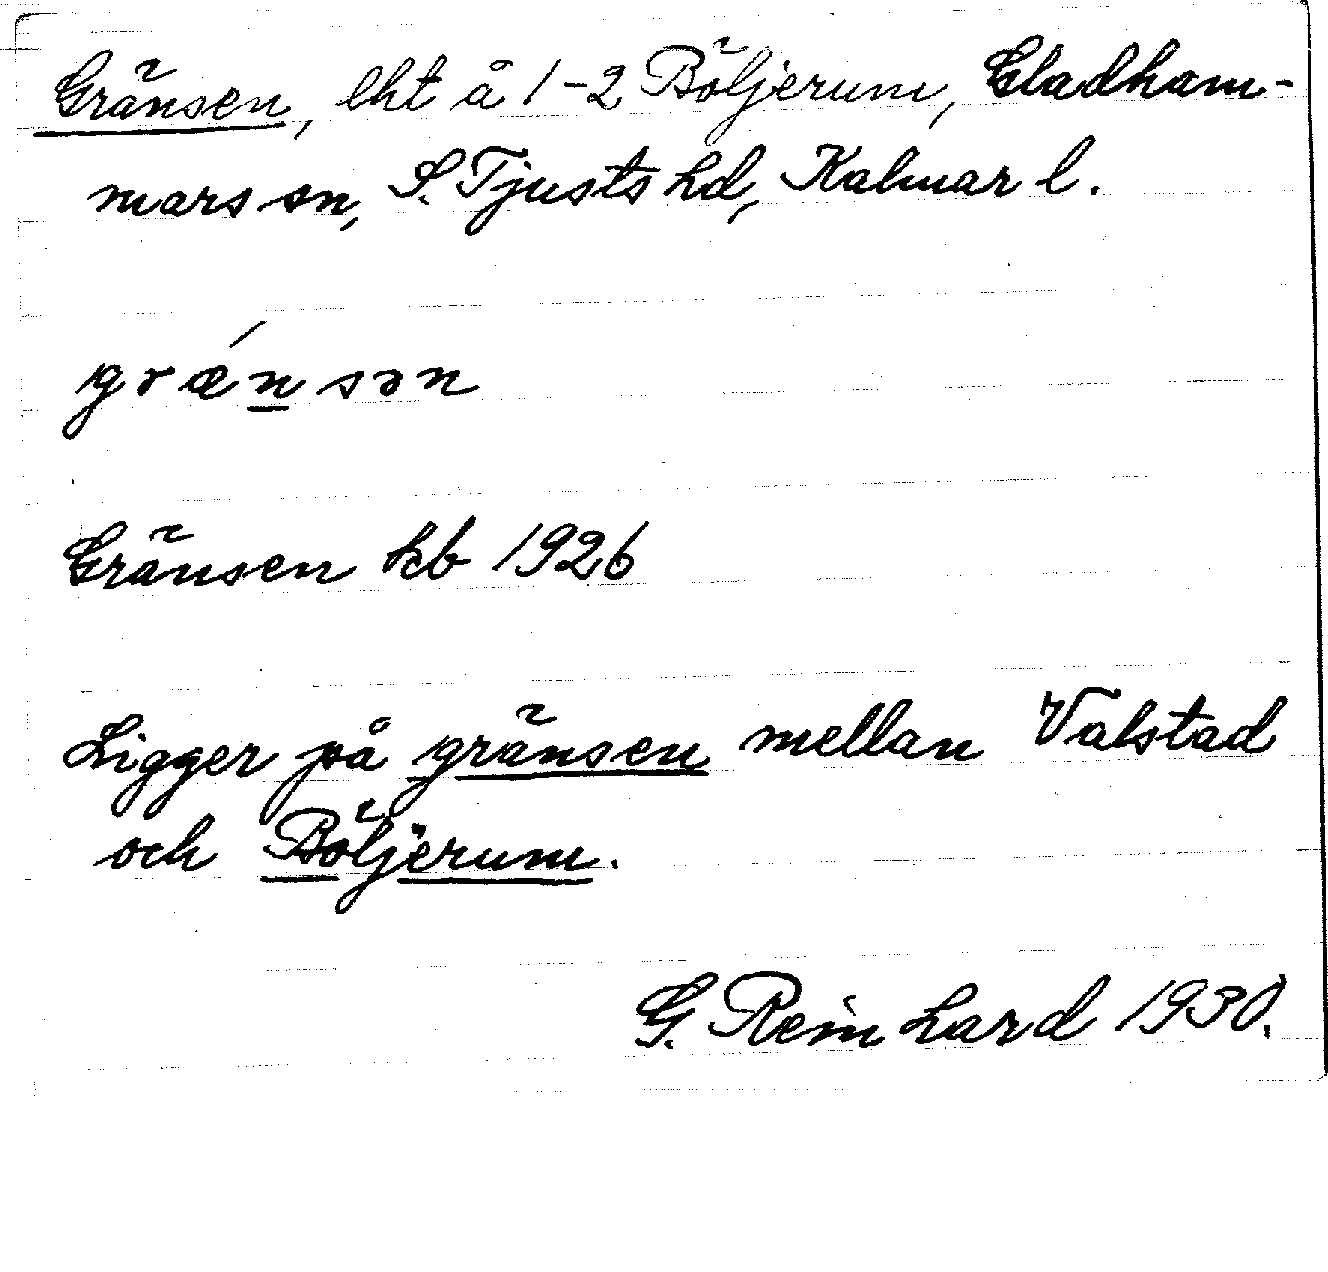 Gränsen, lht å 1-2 Böljerum, Gladham-
mars sn, S. Tjusts hd, Kalmar l.
græ´nsən
Gränsen kb 1926
Ligger på gränsen mellan Valstad
och Böljerum.
G. Reinhard 1930.